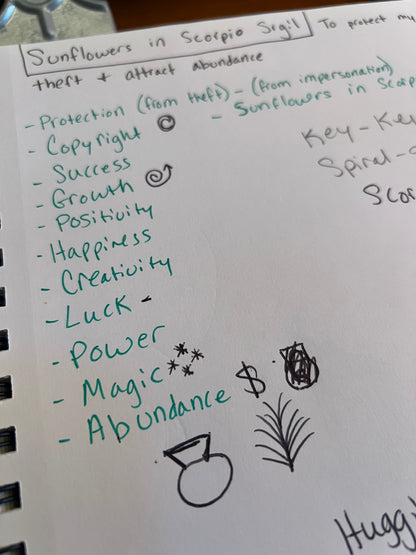 Sunflowers in Scorpio Srgil To protect my
theft + attract abundance
- Protection (from theft) - (from impersonation)
- Copyright © - Sunflowers in Scorp
- Success
- Growth
- Positivity
- Happiness
- Creativity
- Luck -
- Power
- Magic
- Abundance $
Key - Key
Spiral -
Scor
Huggi